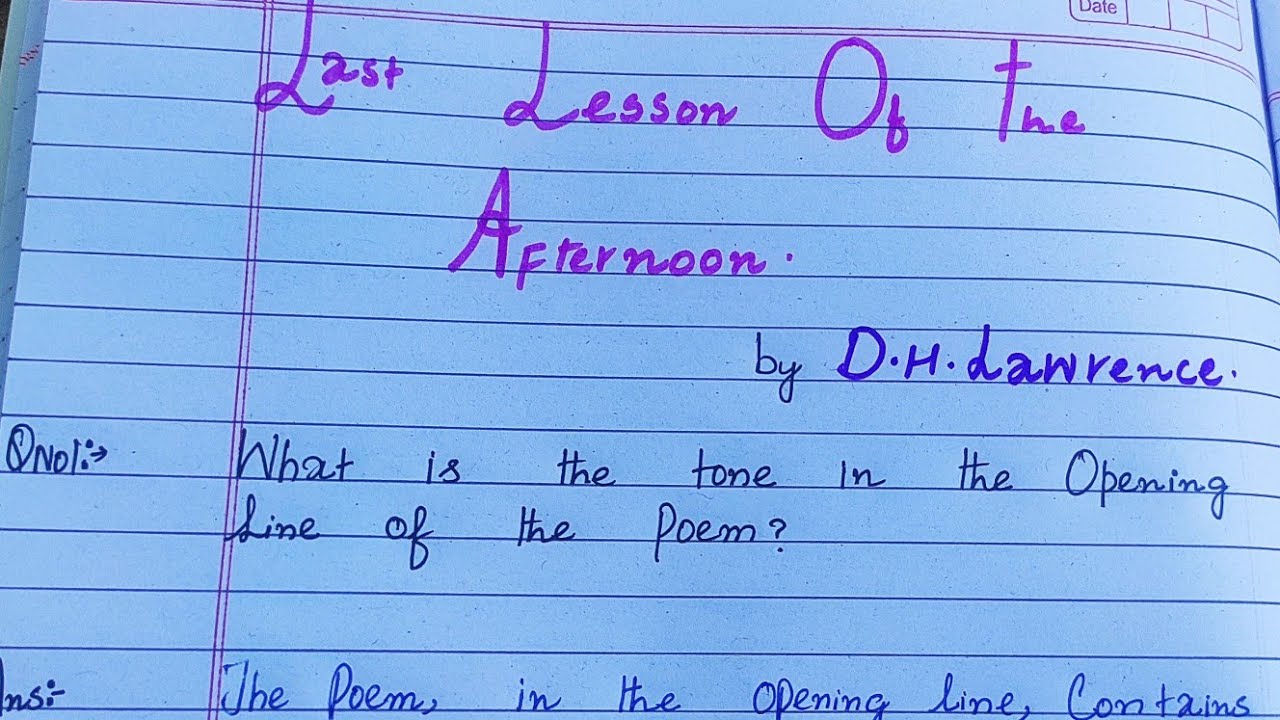 Date
Last Lesson Of The
Afternoon.
by D.H. Lawrence.
QNo1:→ What is the tone in the Opening
line of the Poem?
Ans:- The Poem, in the opening line, Contains